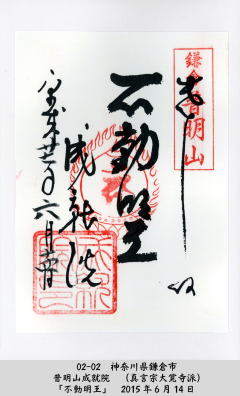 鎌倉 普明山
奉拝
不動明王
成就院
平成廿七年六月十四日
02-02　神奈川県鎌倉市
普明山成就院　（真言宗大覚寺派）
「不動明王」　2015年6月14日